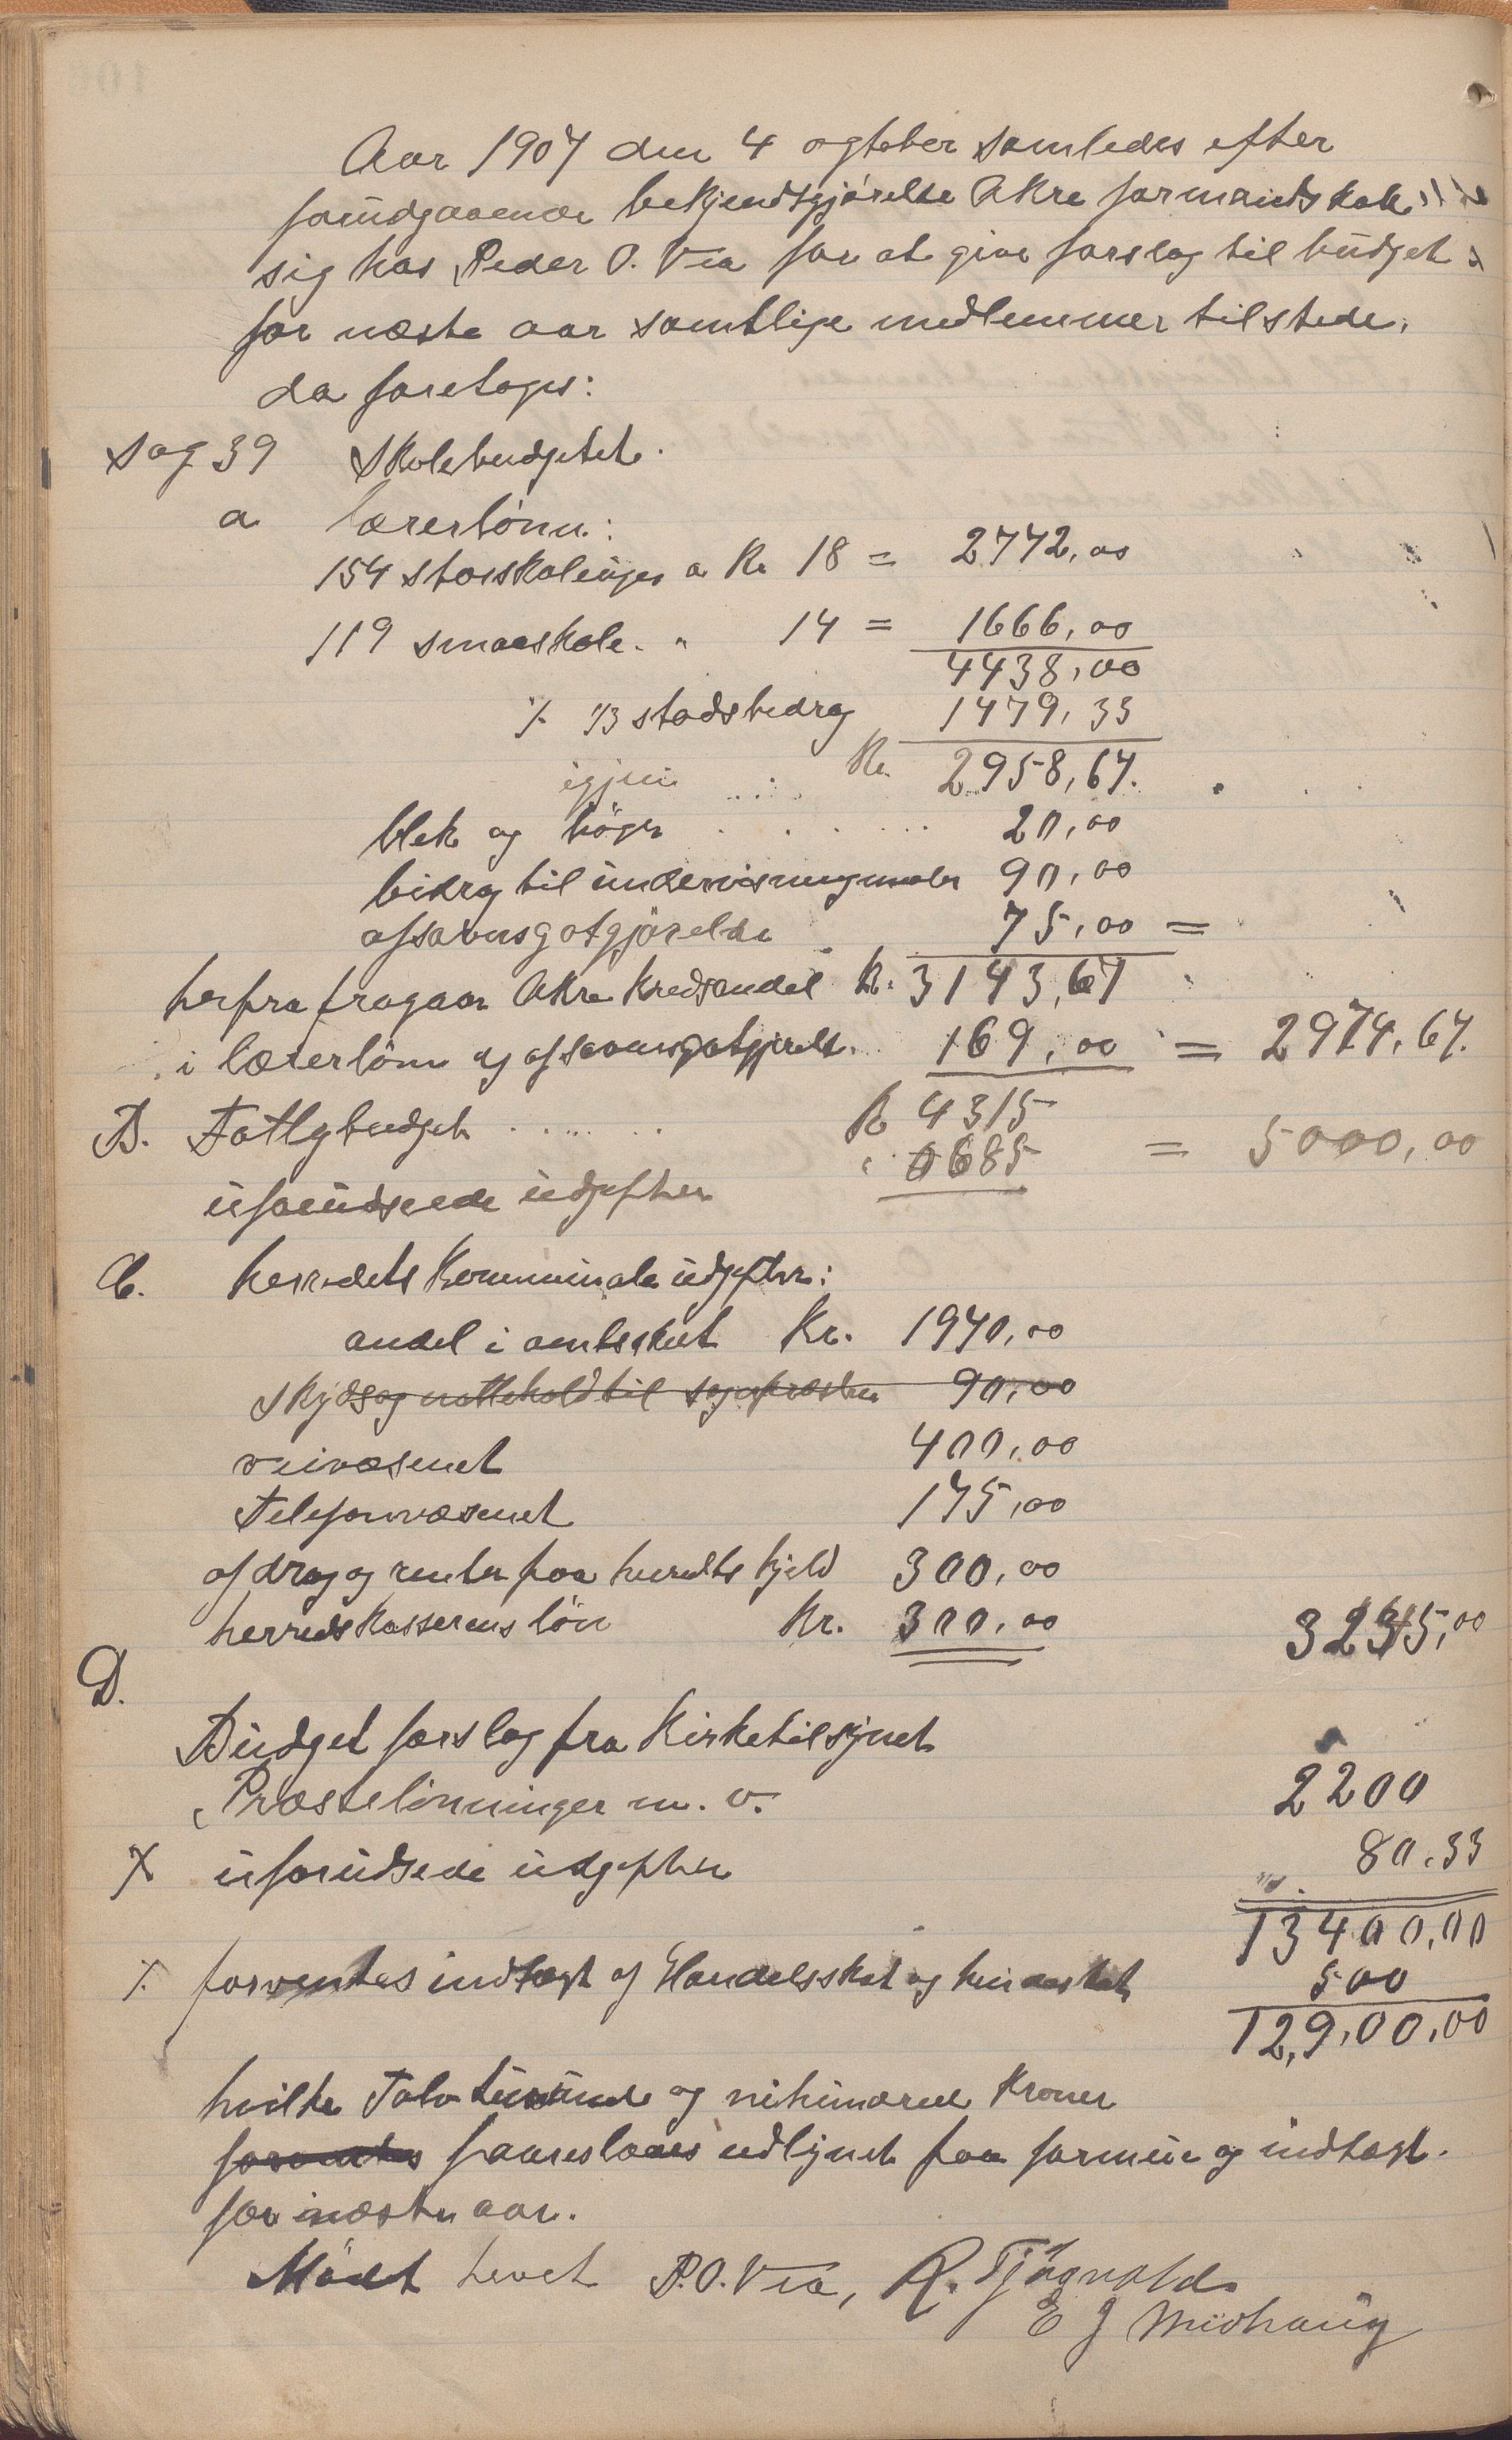 Aar 1907 den 4 ogtober samledes efter
forudgaaende bekjendtgjørelse Akre formandskab
sig hos Peder O. Vea for at give forslag til budget
for næste aar samtlige medlemmer tilstede.
da foretoges:
Sag 39 Skolebudgetet.
a lærerlønn:
154 storskolinger a Kr 18 = 2772,00
119 smaaskole. " 14 = 1666,00
4438,00
÷ 1/3 stadsbedrag 1479,33
igjen Kr. 2958,67.
blek og bøger 20,00
bidrag til undervisningmater 90,00
afsavnsgotgjørelse 75,00 =
herfra fragaar Akre kredsandel Kr. 3143,67
i lærerlønn og afsavnsgotgjørelse 169,00 = 2974,67.
B. Fattigbudget Kr 4315
uforudseede udgifter " 685 = 5000,00
C. herredets Kommunale udgifter:
andel i amtsskat Kr. 1970,00
Skyds og natteholdt til sognepræsten 90,00
veivæsenet 400,00
Telefonvæsenet 175,00
afdrag og renter paa herredts gjeld 300,00
herredskasserens løn Kr. 300,00 3145,00
D.
Budget forslag fra Kirketilsynet
Præstelønninger m. v. 2200
X uforudsede udgifter 80.33
13400,00
÷ forventes indtægt af Handelsskat og hundeskat 500
12,900,00
hvilke Tolv tusinde og nihundrede Kroner
foreslaaes udlignet paa formue og indtægt.
for næste aar.
Mødet hevet P.O. Vea, R. Tjøsvold
E J Midhaug